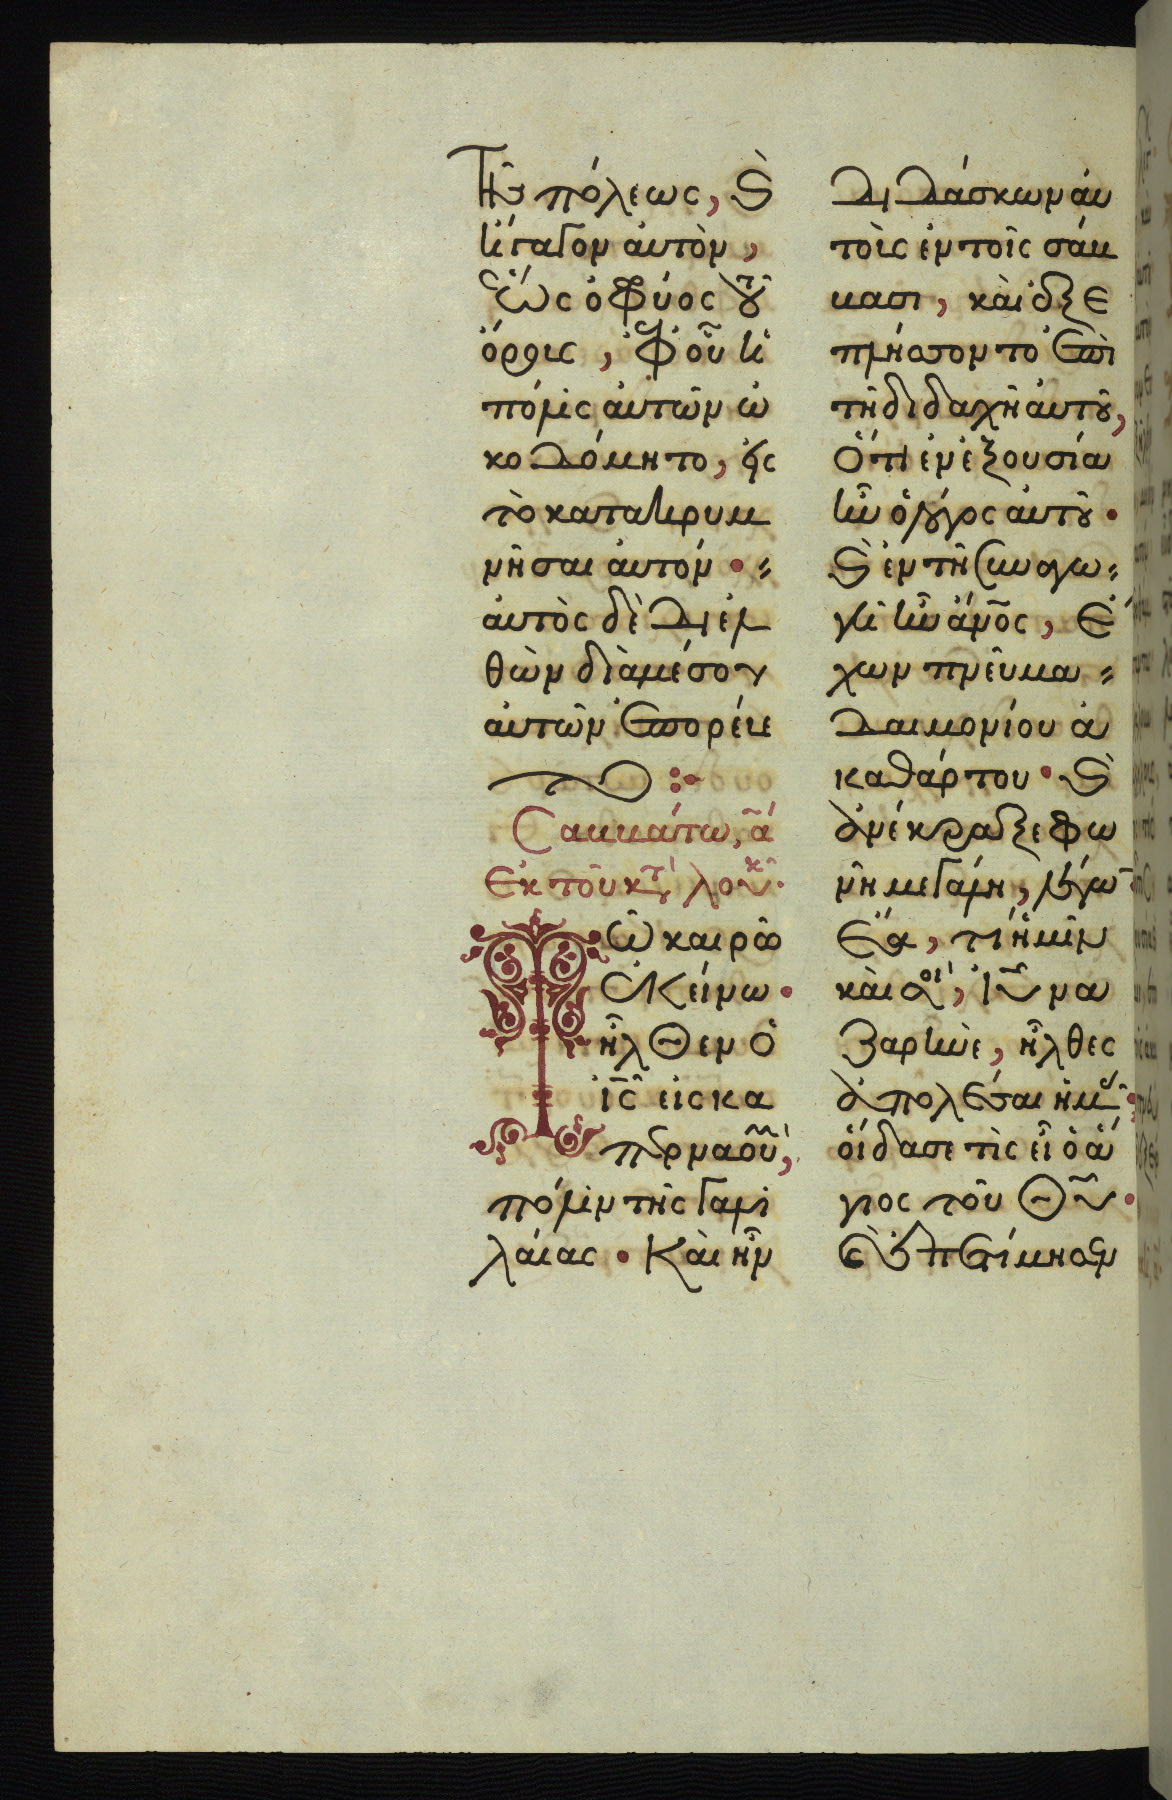 τῆς πόλεως, καὶ
ἤγαγον αὐτὸν,
ἕως ὀφρύος τοῦ
ὄρους, ἐφ' οὗ ἡ
πόλις αὐτῶν ὠ
κοδόμητο, εἰς
τὸ κατακρημ
νῆσαι αὐτόν·
αὐτὸς δὲ διελ
θὼν διὰ μέσου
αὐτῶν ἐπορεύε
το
Σαββάτω, α
Ἐκ τοῦ κατὰ λουκ
Τῶ καιρῶ
ἐκείνω·
ἦλθεν ὁ
ἰς εἰς κα
περναοὺμ,
πόλιν τῆς γαλι
λαίας· Καὶ ἦν
διδάσκων αὐ
τοὺς ἐν τοῖς σάβ
βασι, καὶ ἐξε
πλήσσοντο ἐπὶ
τῆ διδαχῆ αὐτοῦ,
ὅτι ἐν ἐξουσία
ἦν ὁ λόγος αὐτοῦ·
καὶ ἐν τῆ συναγω
γῆ ἦν ἄνος, ἔ
χων πνεῦμα
δαιμονίου ἀ
καθάρτου· καὶ
ἀνέκραξε φω
νῆ μεγάλη, λέγων
ἔα, τί ἡμῖν
καὶ σοί, ἰυ να
ζαρηνὲ, ἦλθες
ἀπολέσαι ἡμᾶς·
οἶδα σε τίς εἶ ὁ ἅ
γιος τοῦ θυ·
καὶ ἐπετίμησεν